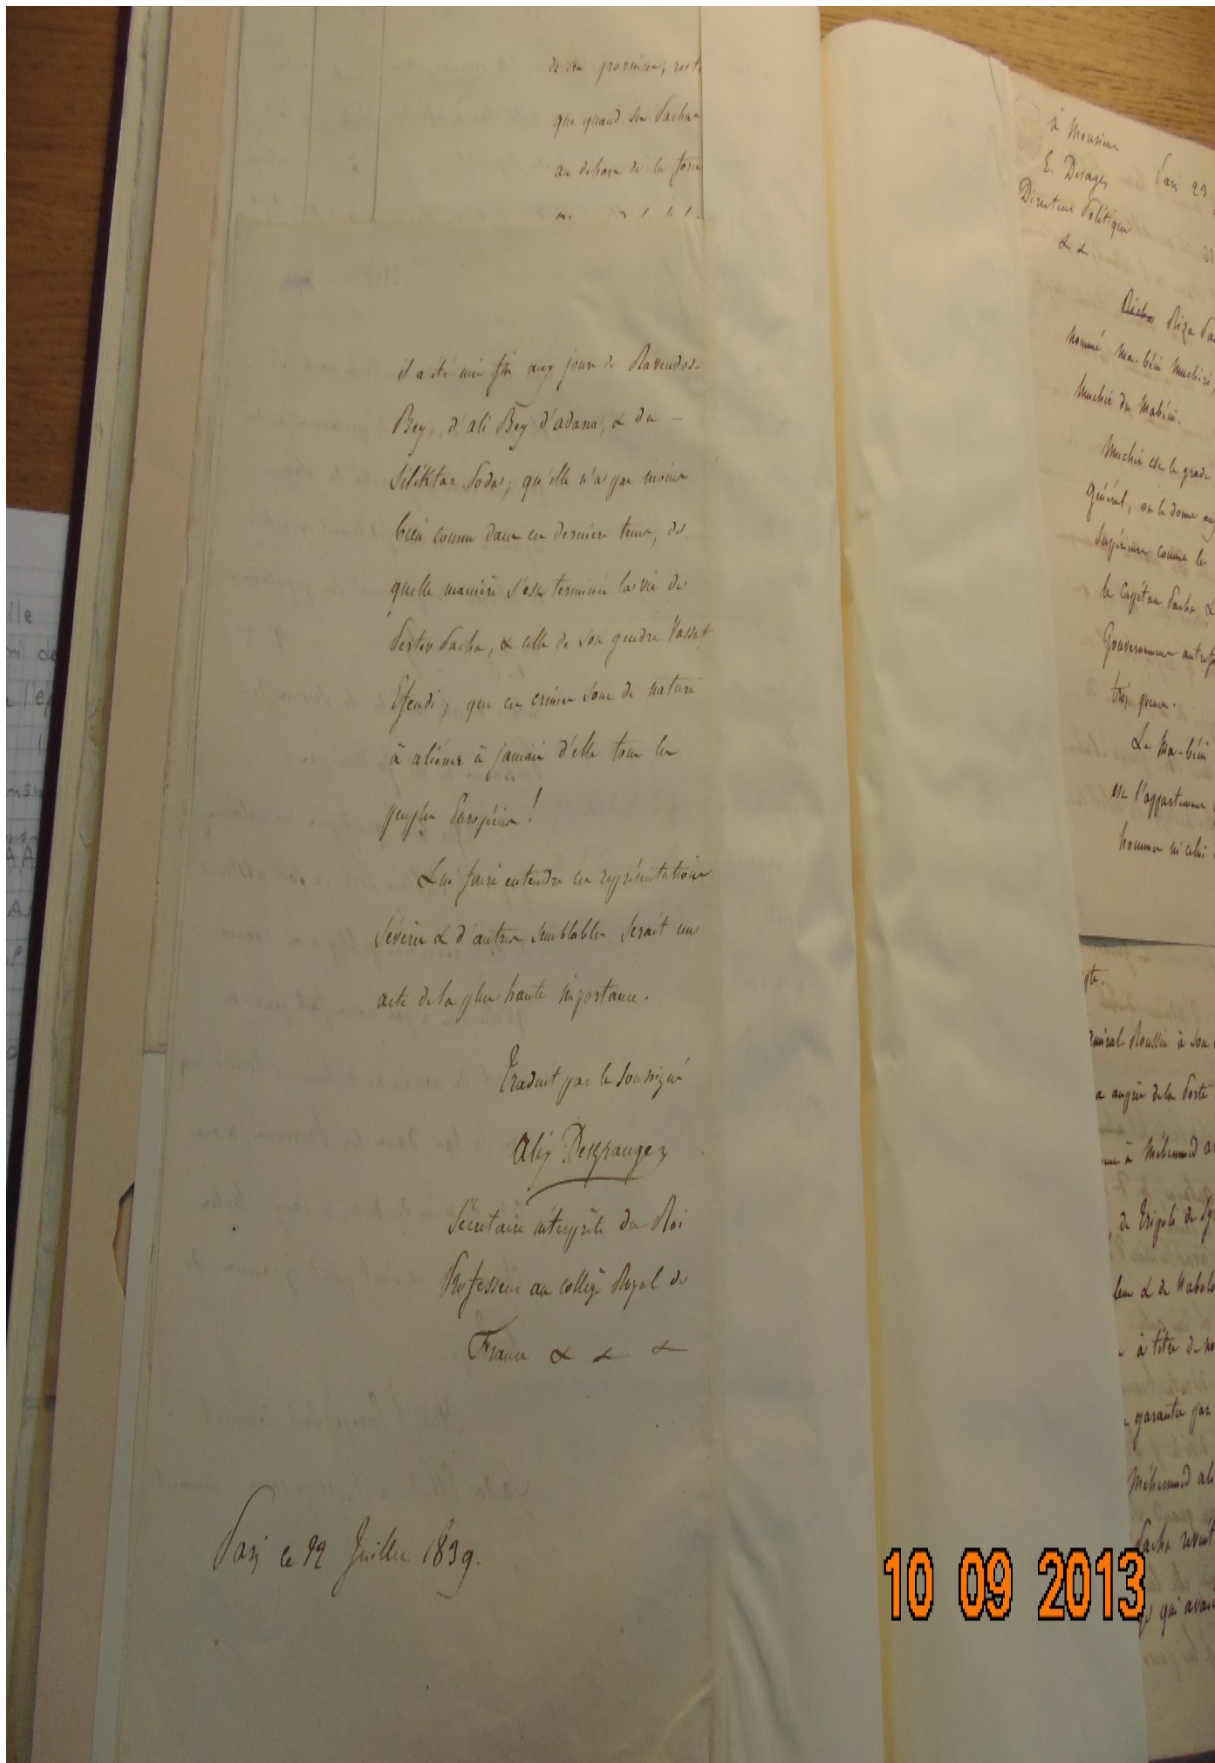 de ces provinces, sont
que quand un Pacha
au dehors de la forme
il a été mis fin aux jours de Ravendos-
Bey, d'ali Bey d'adana, & du -
Siliktar Poda; qu'elle n'a pas moins
bien connu dans ces derniers tems, de
quelle manière s'est terminée la vie de
Pertev Pacha, & celle de son gendre Vassaf
Efendi; que ces crimes sont de nature
à aliéner à jamais d'elle tous les
peuples Européens!
Lui faire entendre ces représentations
sévères & d'autres semblables serait un
acte de la plus haute importance.
Traduit par le soussigné
Alix Desgranges
Secrétaire interprète du Roi
Professeur au collège Royal de
France & & &
Paris ce 22 Juillet 1839.
à Monsieur
E. Desages
Directeur Politique
& &
Paris 29
Riza Pa
Nommé ma-béin muchiri,
Muchir du Mabéin.
Muchir est le grade
Général, on le donne aux
Supérieurs comme le
le Capitan Pacha, &
Gouverneurs autrefois
trois queues.
Le Ma-béin
est l'appartement
hommes ni celui
pte.
amiral Roussin à son
a auprès de la Porte
à Méhemmed a
de Tripoli de Sy
& de Nabolo
à titre de
garantie par
Méhemmed ali
Pacha revint
qui avait
10 09 2013